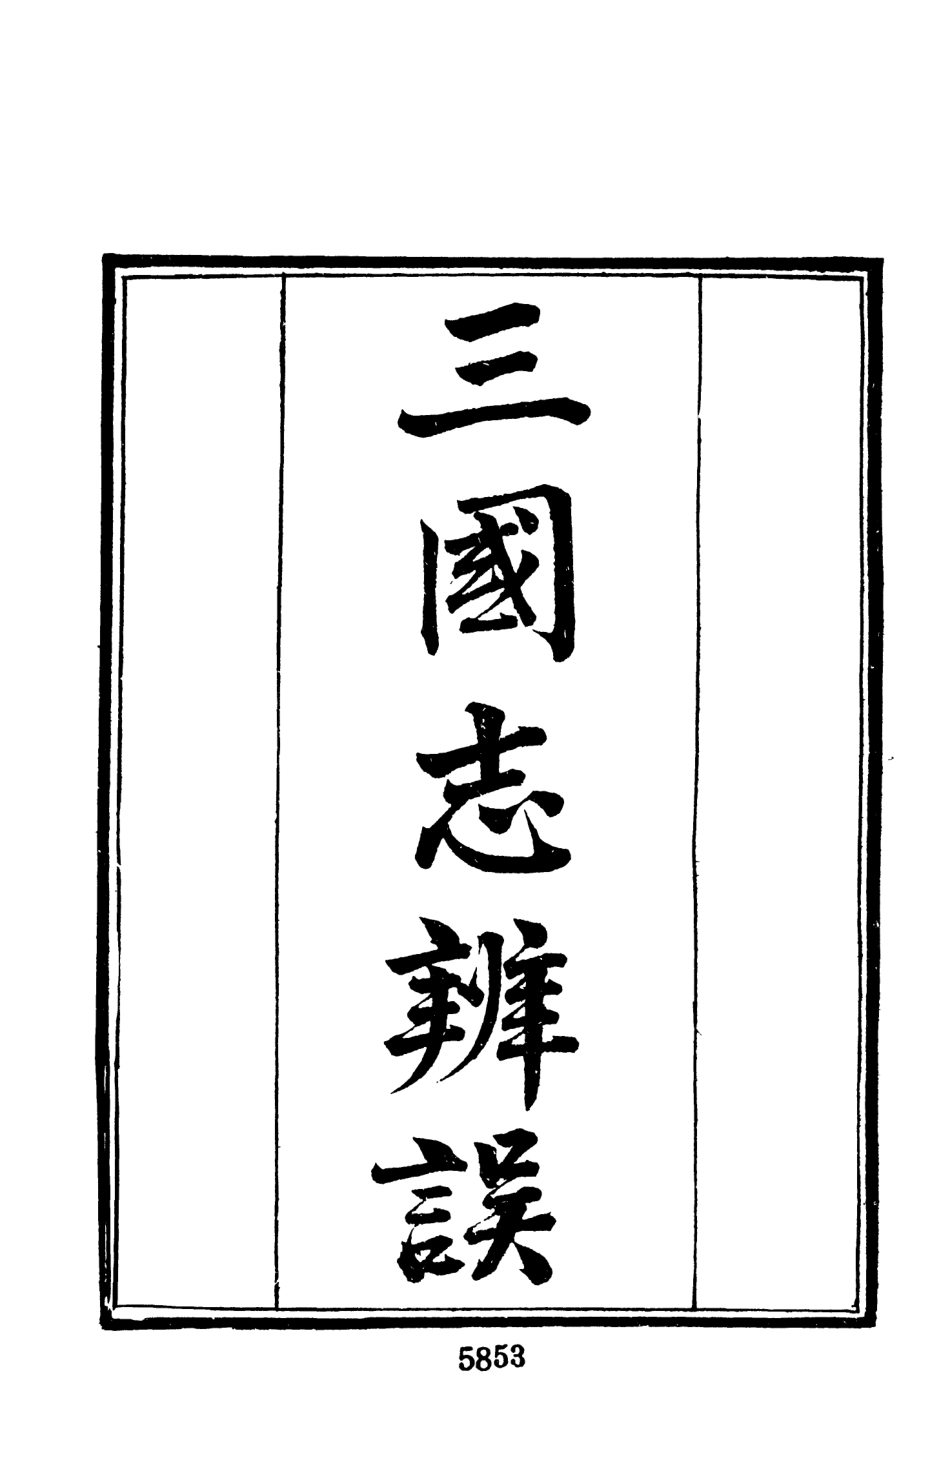 三國志辨誤
5853